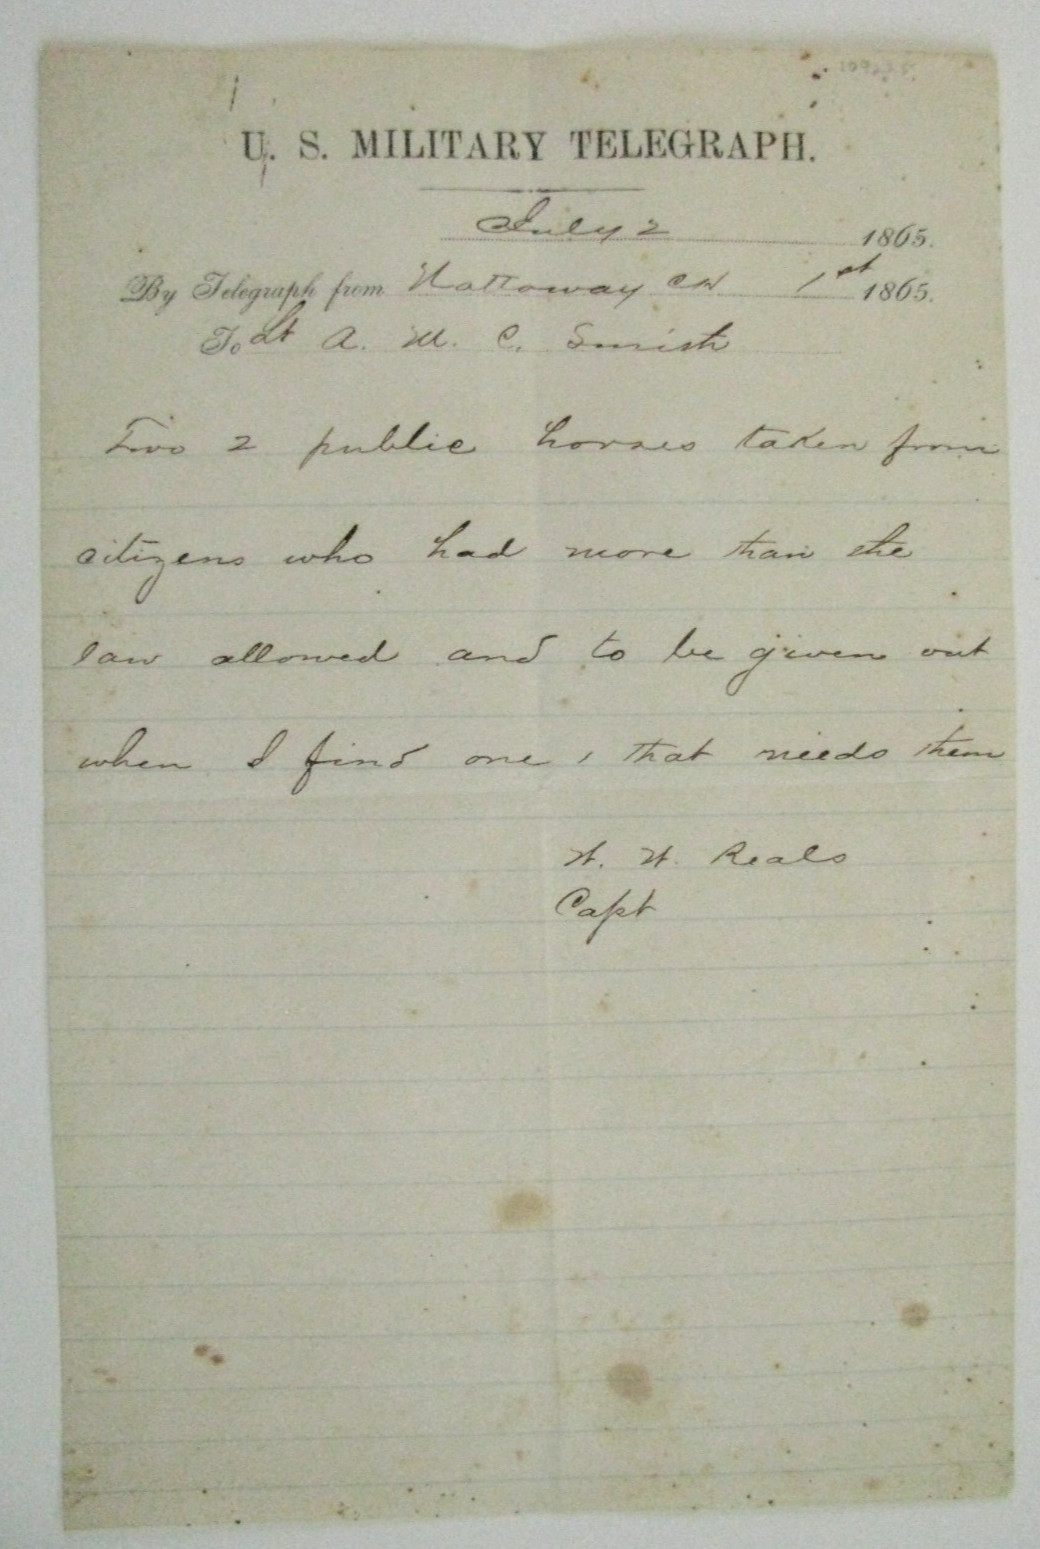 U. S. MILITARY TELEGRAPH.
July 2 1865.
By Telegraph from Nattoway CH 1st 1865.
To Lt A. M. C. Smith
Two 2 public horses taken from
citizens who had more than the
law allowed and to be given out
when I find one, that needs them
W. W. Reals
Capt